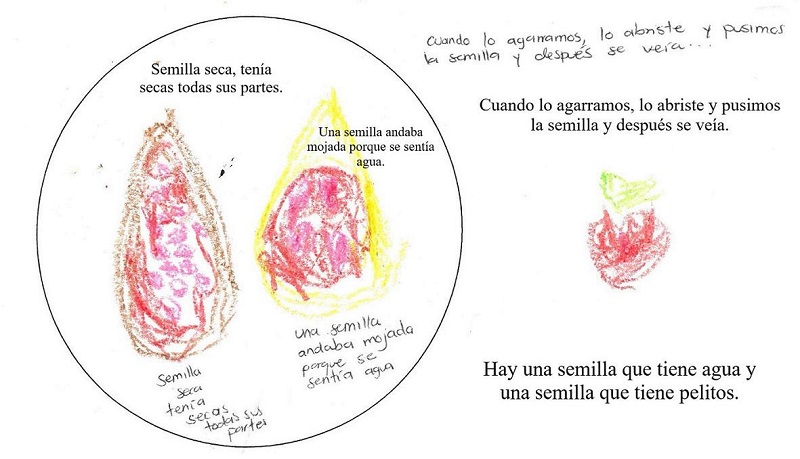 Cuando lo agarramos, lo abriste y pusimos
la semilla y después se veía...
Semilla seca, tenía
secas todas sus partes.
Una semilla andaba
mojada porque se sentía
agua.
Cuando lo agarramos, lo abriste y pusimos
la semilla y después se veía.
una semilla
andaba mojada
porque se
sentía agua
Semilla
seca
tenía
secas
todas sus
partes
Hay una semilla que tiene agua y
una semilla que tiene pelitos.